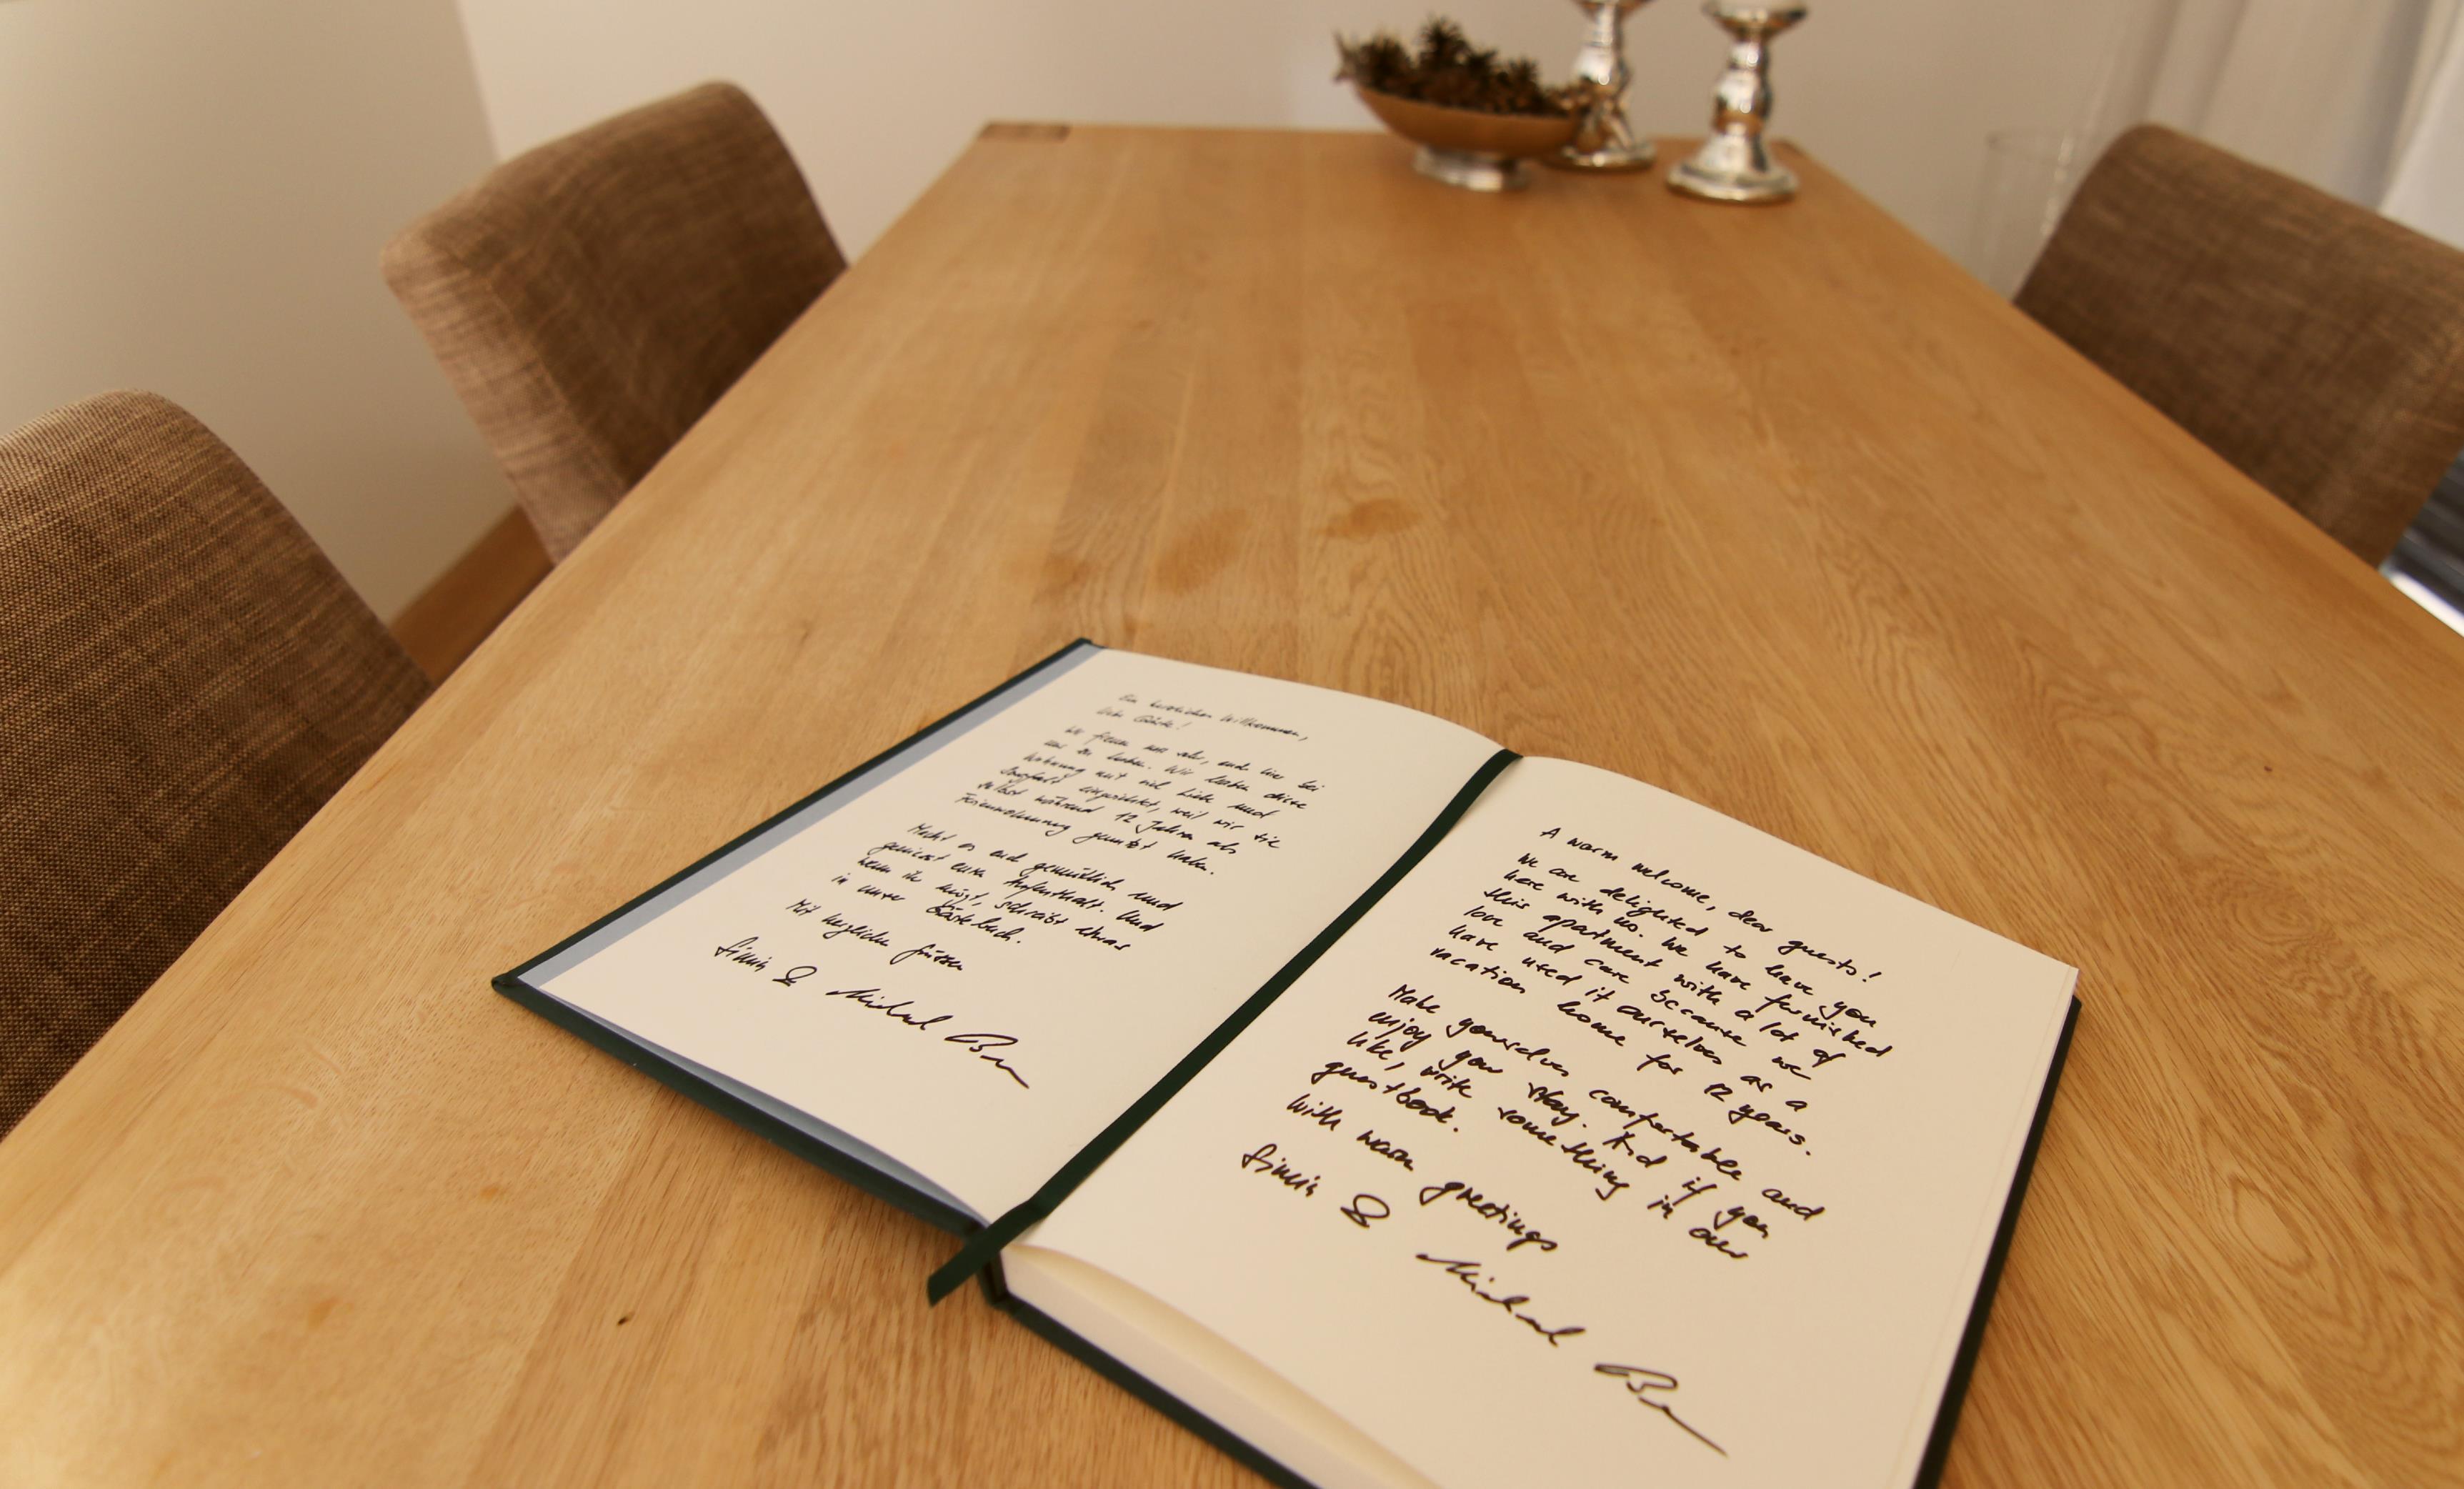 Ein herzliches Willkommen,
liebe Gäste!
Wir freuen uns sehr, euch hier bei
uns zu haben. Wir haben diese
Wohnung mit viel Liebe und
Sorgfalt eingerichtet, weil wir sie
selbst während 12 Jahren als
Ferienwohnung genutzt haben.
Macht es euch gemütlich und
geniesst euren Aufenthalt. Und
wenn ihr mögt, schreibt etwas
in unser Gästebuch.
Mit herzlichen Grüssen
& Michael
A warm welcome, dear guests!
We are delighted to have you
here with us. We have furnished
this apartment with a lot of
love and care because we
have used it ourselves as a
vacation home for 12 years.
Make yourselves comfortable and
enjoy your stay. And if you
like, write something in our
guestbook.
With warm greetings
& Michael